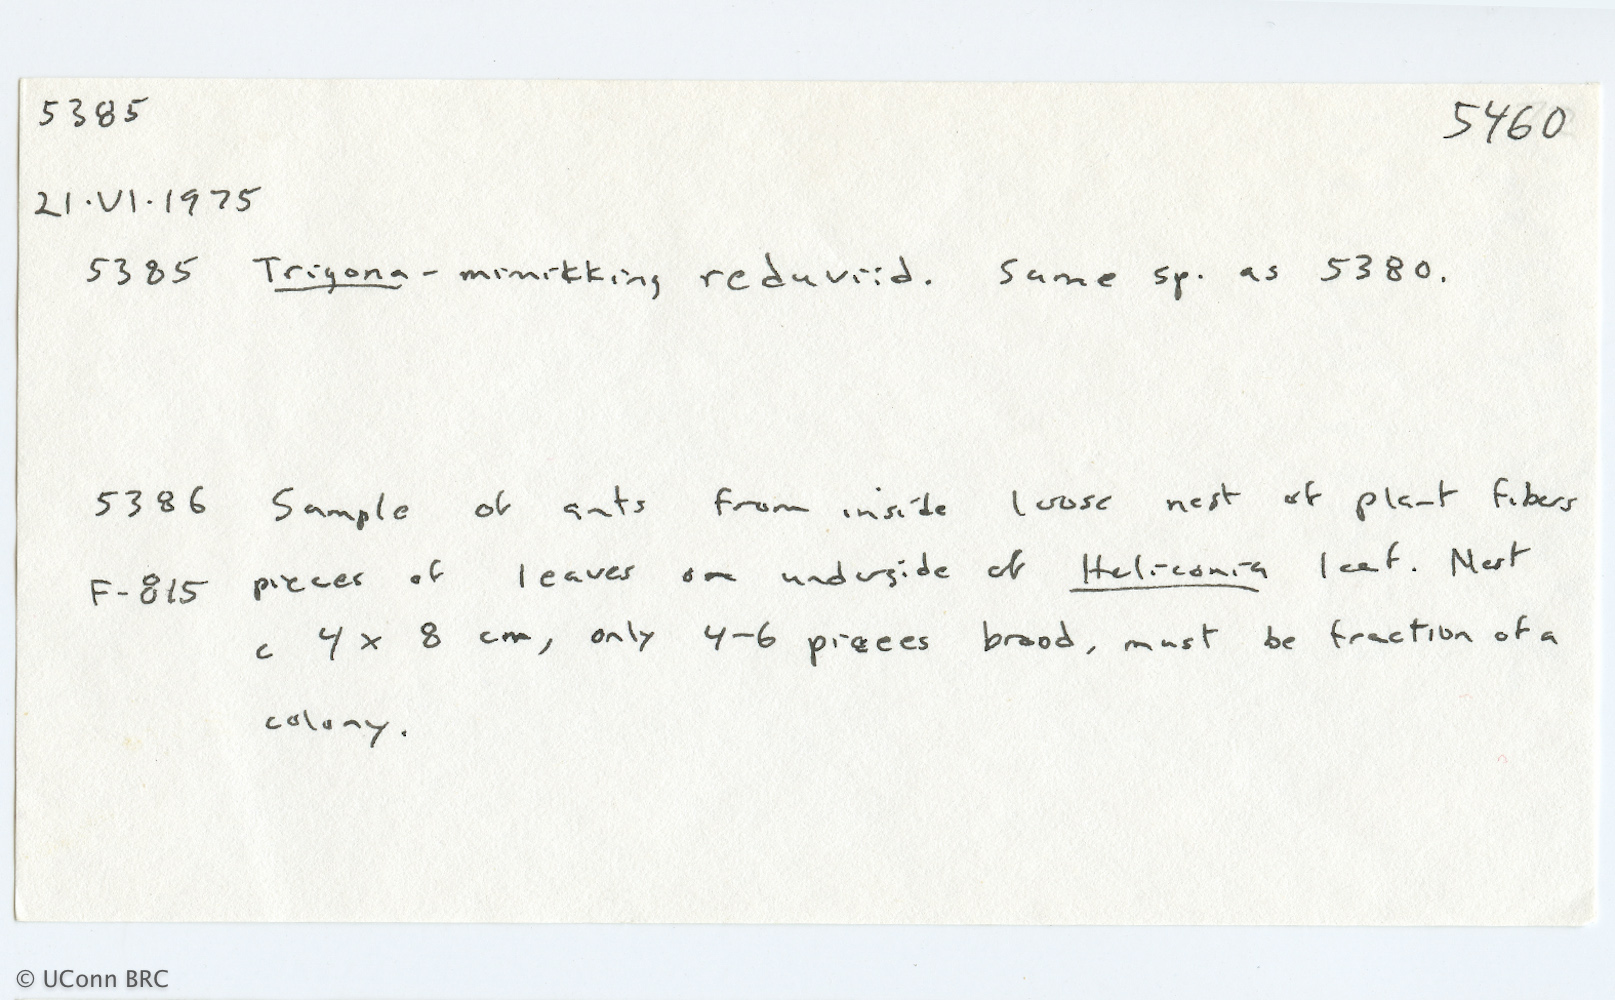 5385
5460
21.VI.1975
5385 Trigona-mimikking reduviid. Same sp. as 5380.
5386 Sample of ants from inside loose nest of plant fibers
F-815 pieces of leaves on underside of Heliconia leaf. Nest
c 4 x 8 cm, only 4-6 pieces brood, must be fraction of a
colony.
© UConn BRC